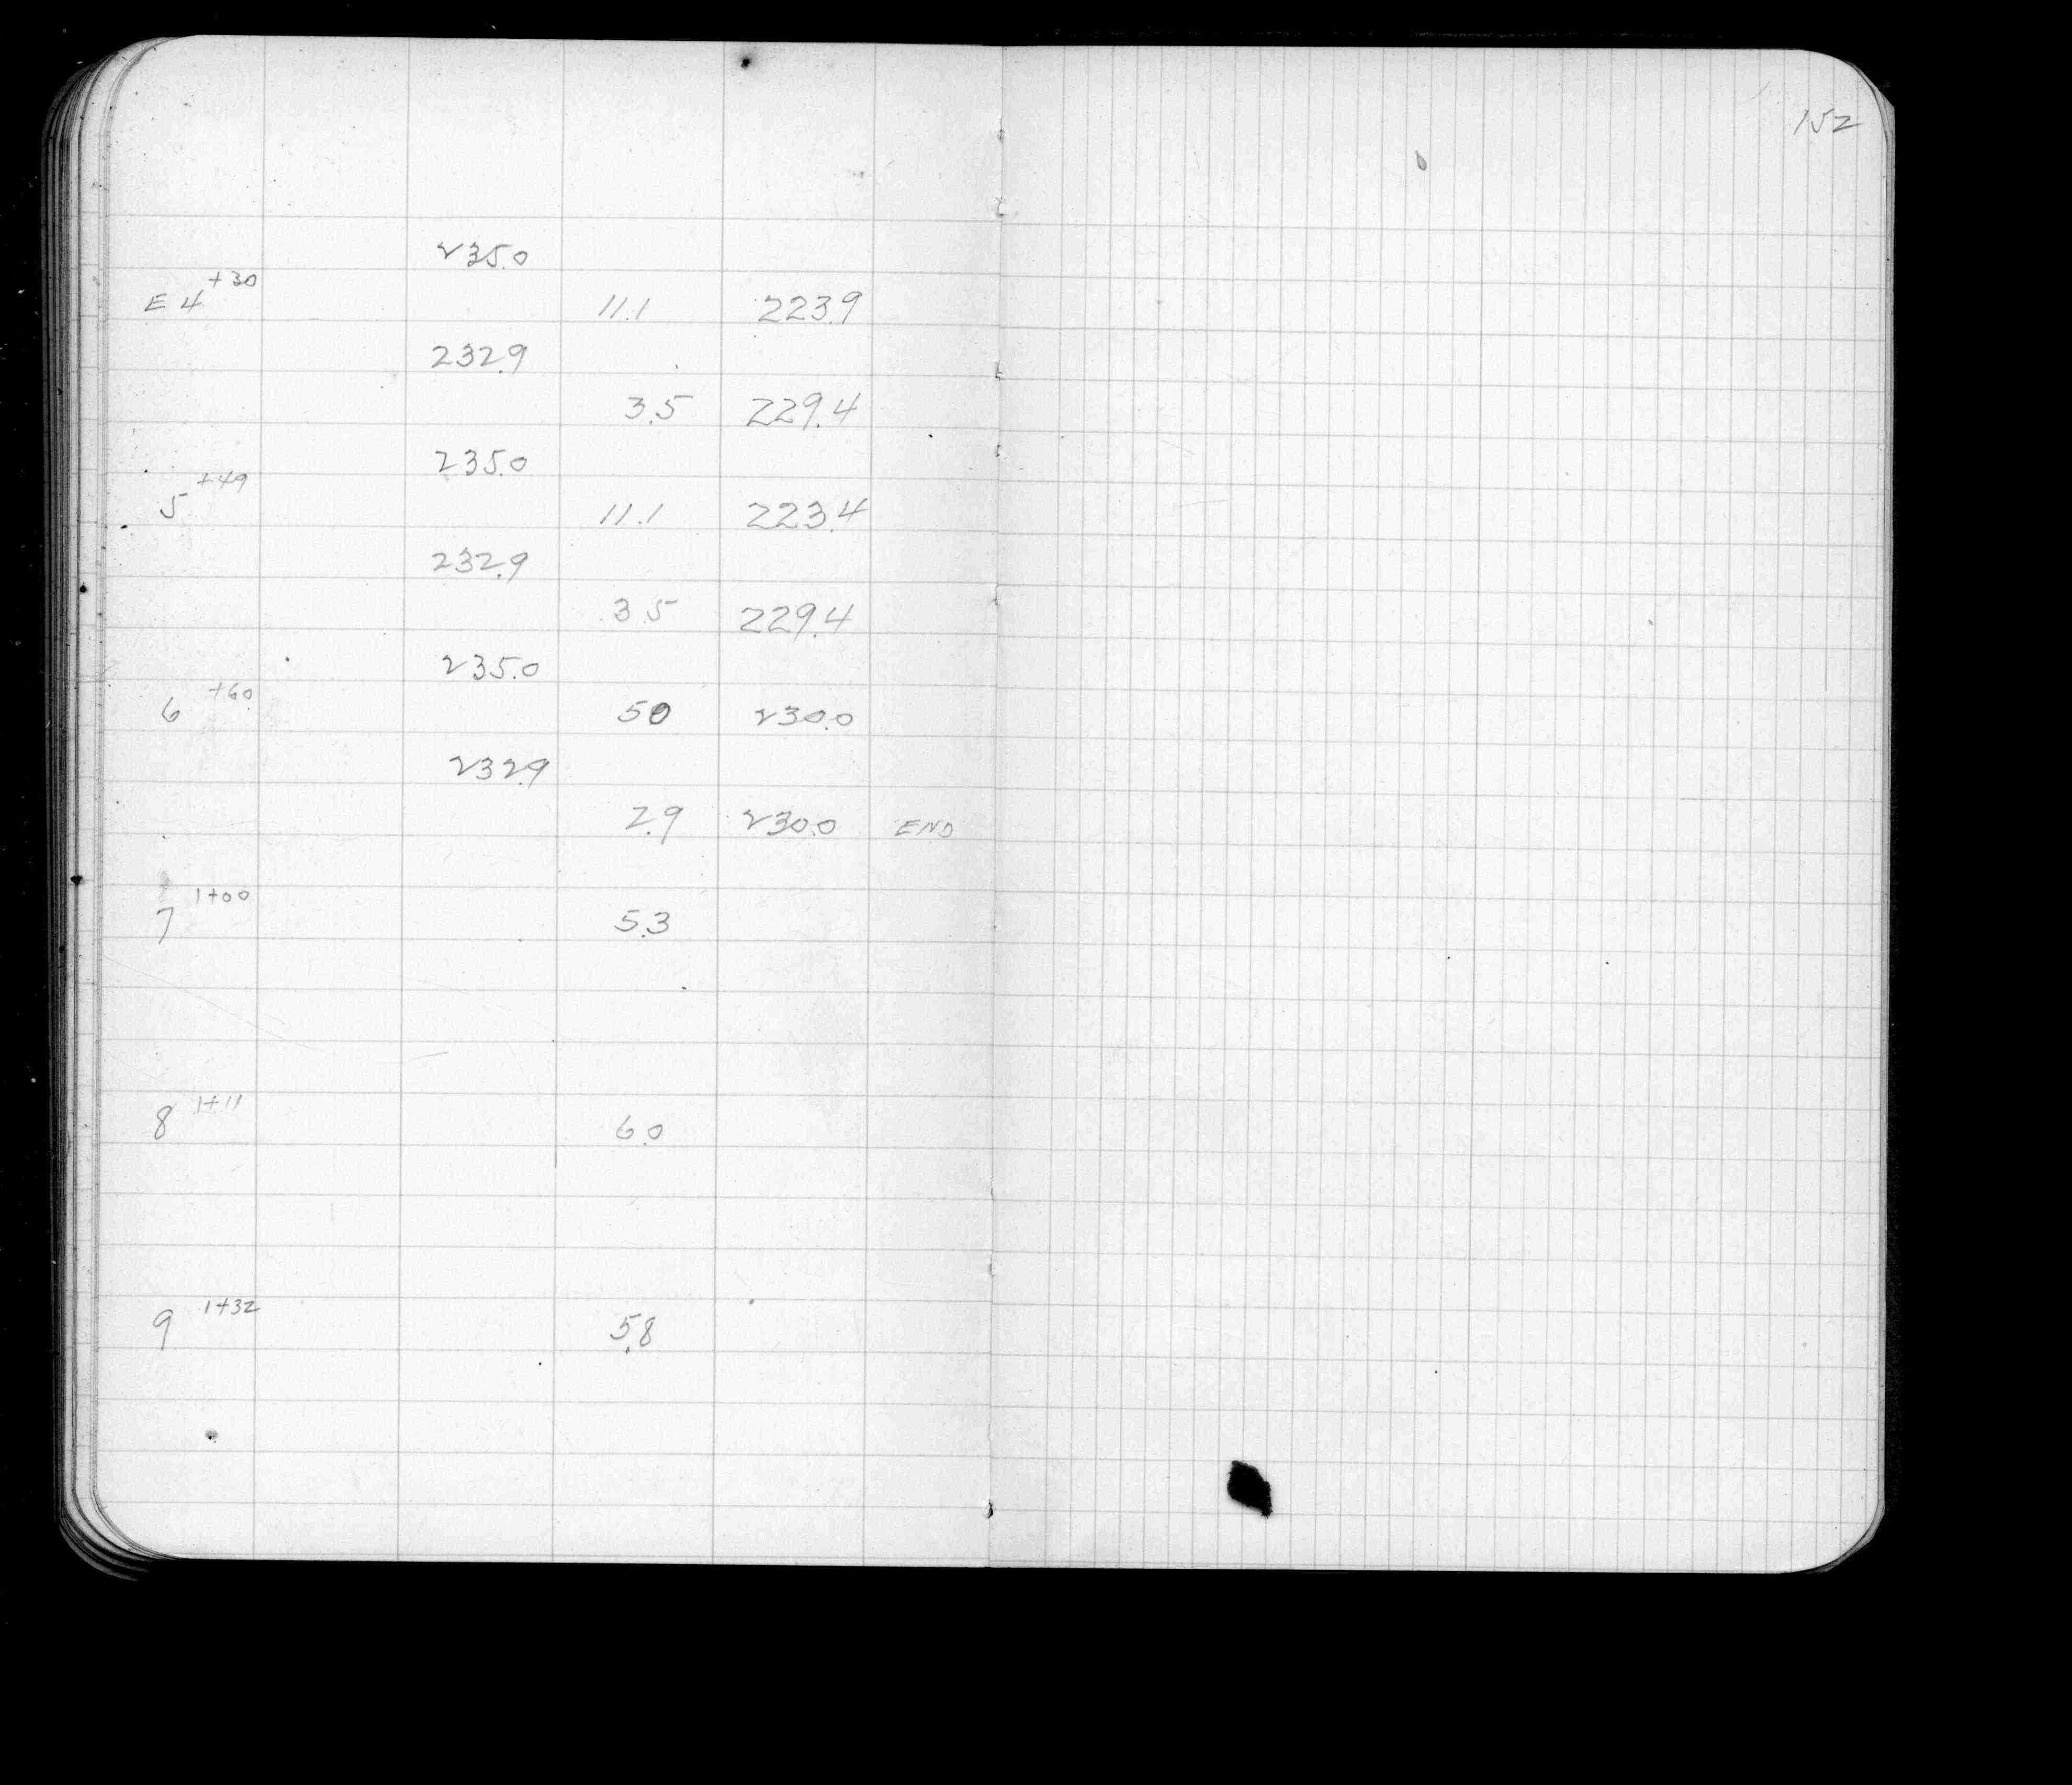 152
235.0
E 4 +30 11.1 223.9
232.9
3.5 229.4
235.0
5 +49 11.1 223.4
232.9
3.5 229.4
235.0
6 +60 50 230.0
232.9
2.9 230.0 END
7 1+00 5.3
8 1+11 6.0
9 1+32 5.8